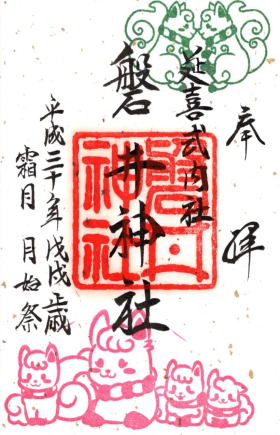 奉拝
延喜式内社
磐井神社
磐井神社
平成三十年戊戌歳
霜月 月始祭